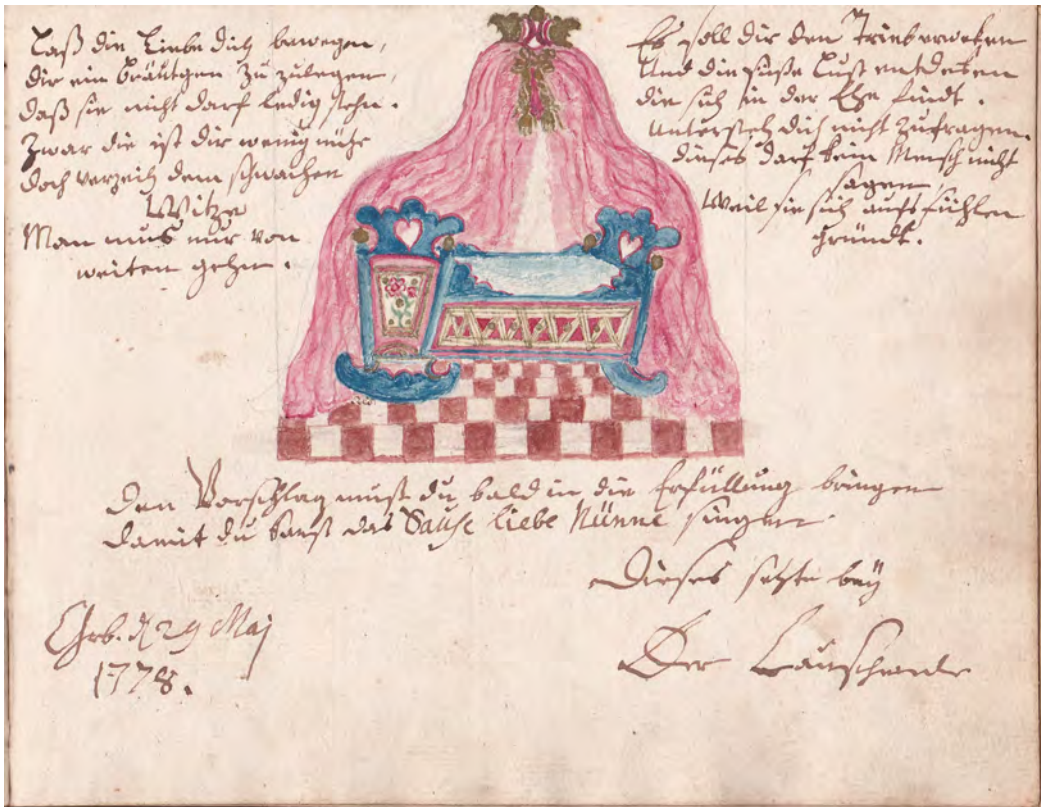 Laß die Liebe dich bewegen,
dir ein Bräutgen zu zulegen,
daß sie nicht darf ledig stehn.
Zwar die ist dir wenig nütze
doch verzeih dem schwachen
Witze
Man mus nur von
weiten gehn.
Es soll dir den Trieb erweken
Und die süße Lust entdeken
die sich in der Ehe findt.
Untersteh dich nicht zu fragen.
dieses darf kein Mensch nicht
sagen
Weil sie sich aufs fühlen
gründt.
Den Vorschlag must du bald in die Erfüllung bringen
damit du kanst das Sause liebe Ninne singen
Dieses sezte bey
Der
29 Maj
1778.